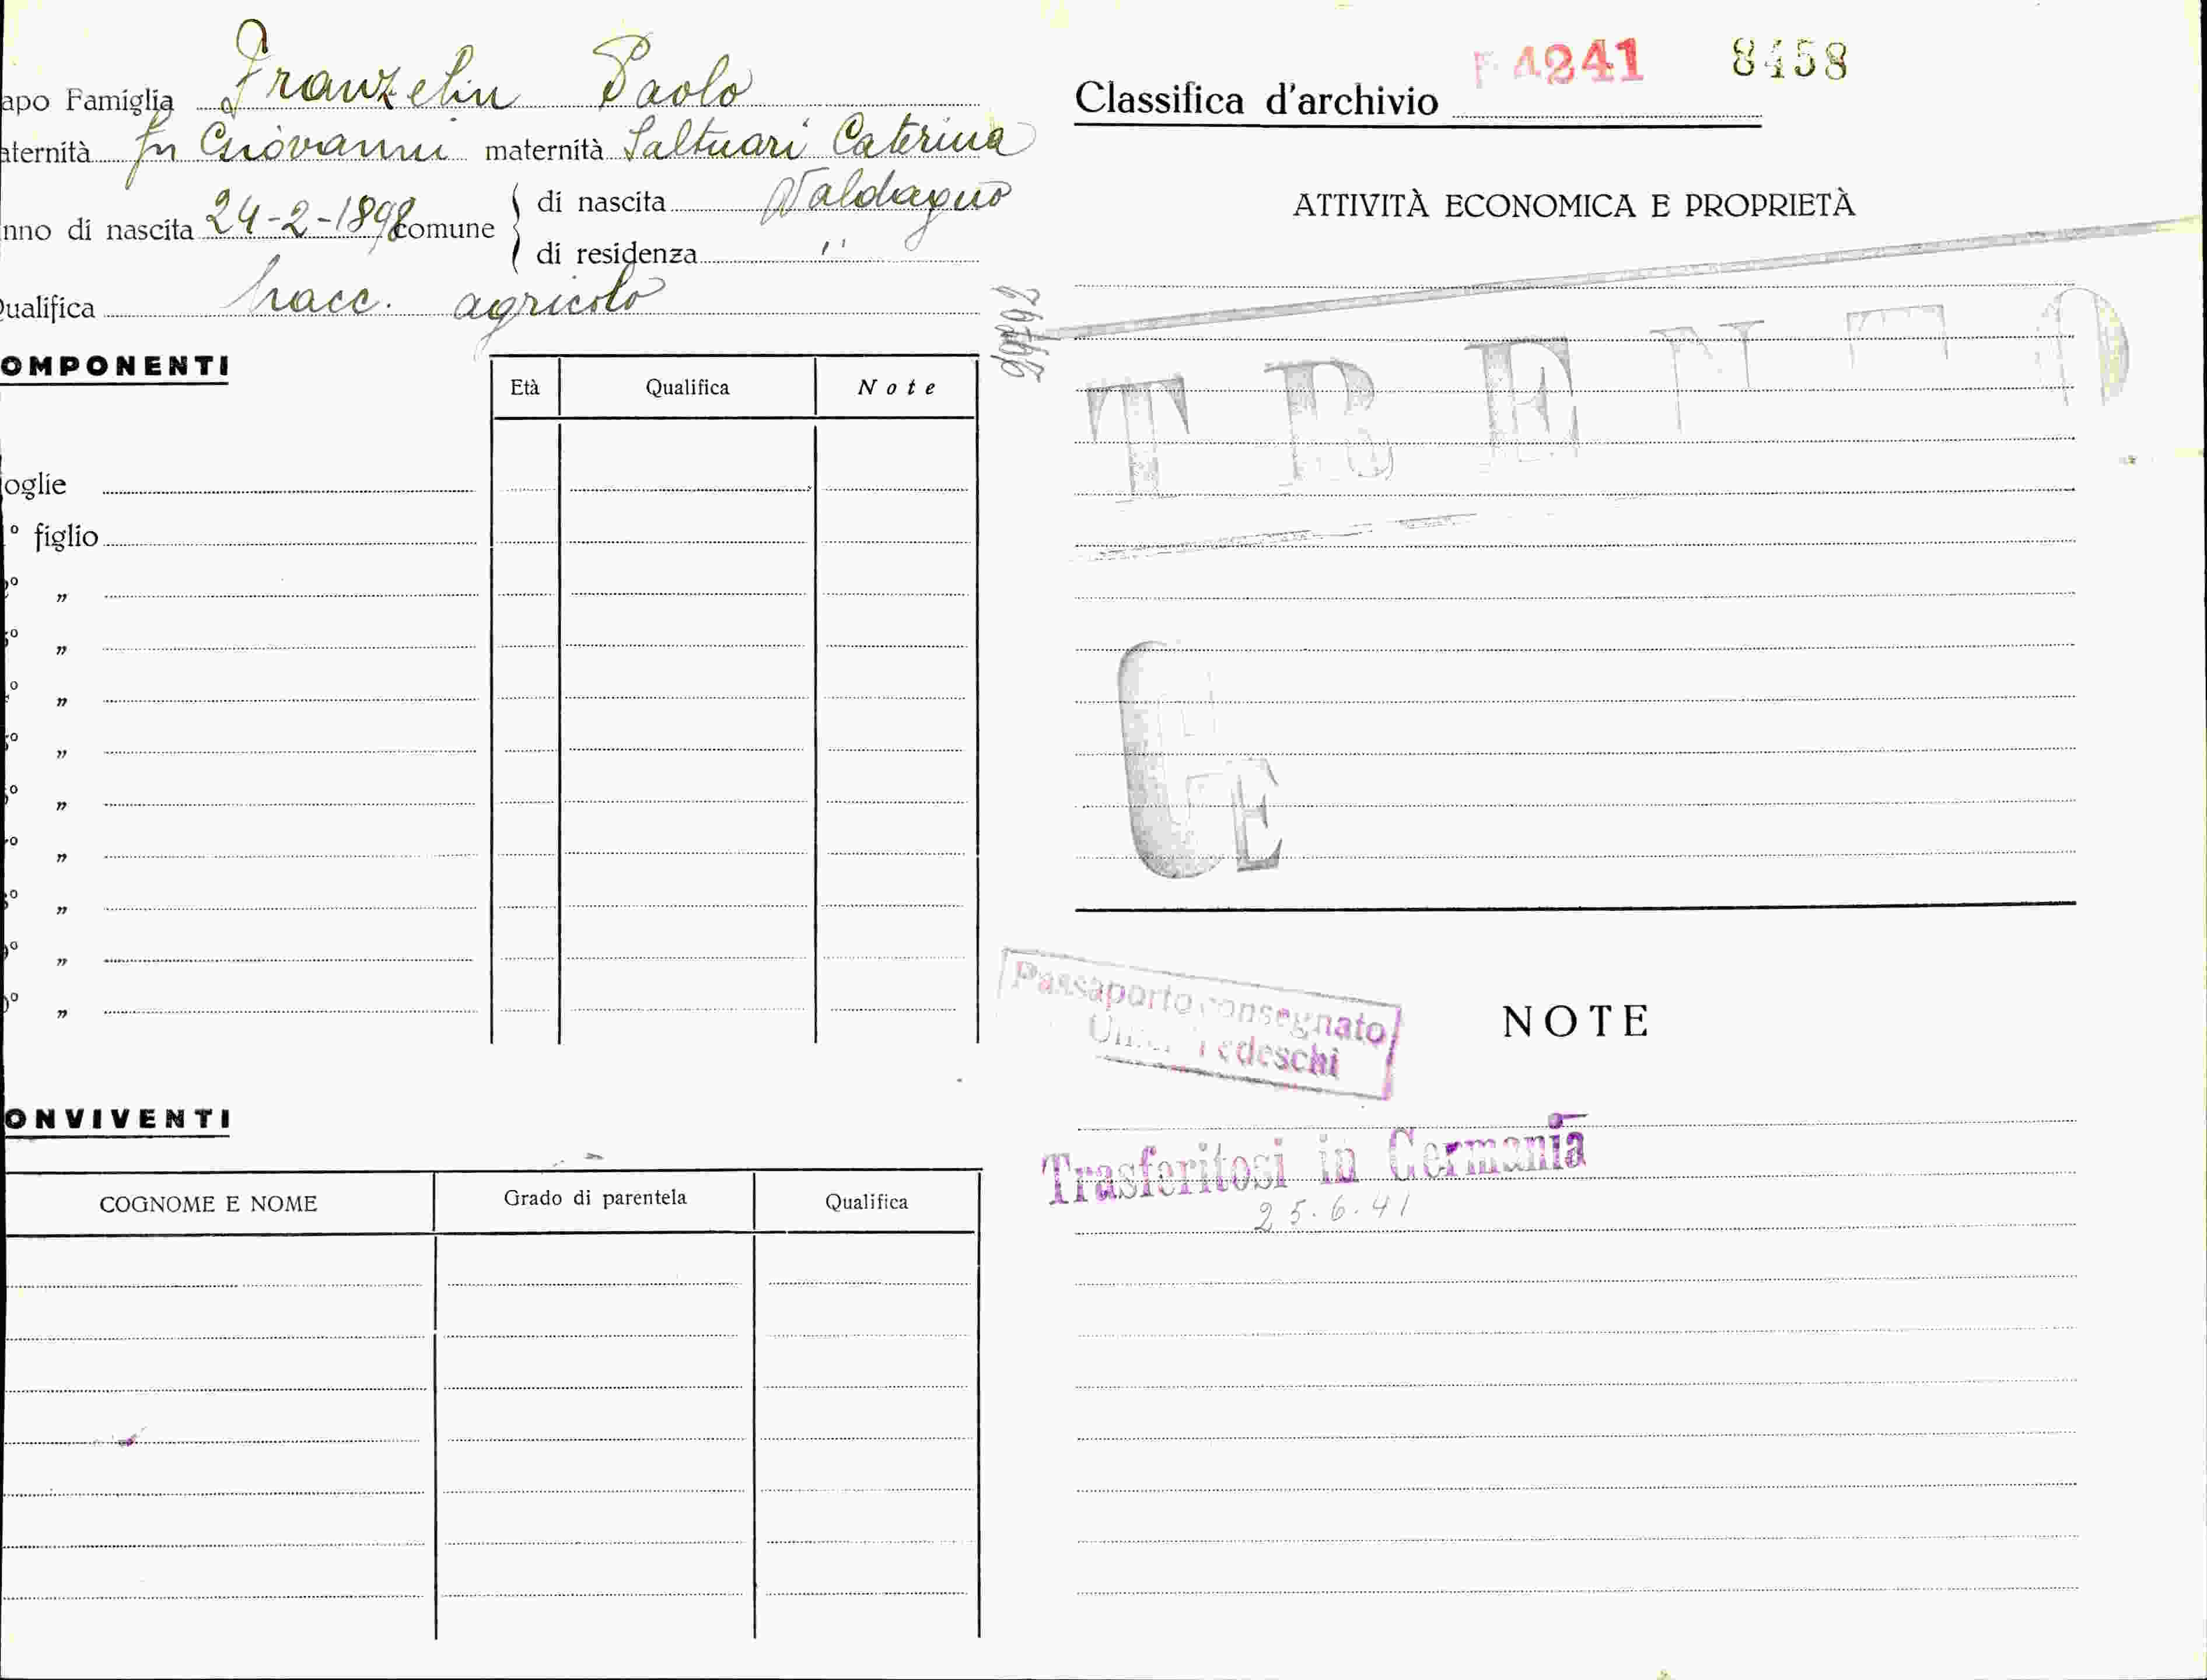 apo Famiglia Franzelin Paolo
aternità fu Giovanni maternità Saltuari Caterina
nno di nascita 24-2-1898 comune di nascita Valdagno
di residenza "
Qualifica bracc. agricolo
OMPONENTI
Età Qualifica Note
oglie
° figlio
° "
° "
° "
° "
° "
° "
° "
° "
° "
ONVIVENTI
COGNOME E NOME Grado di parentela Qualifica
Classifica d'archivio F 4241 8458
ATTIVITÀ ECONOMICA E PROPRIETÀ
TRENTO
CE
Passaporto consegnato
Tedeschi
NOTE
Trasferitosi in Germania
25.6.41